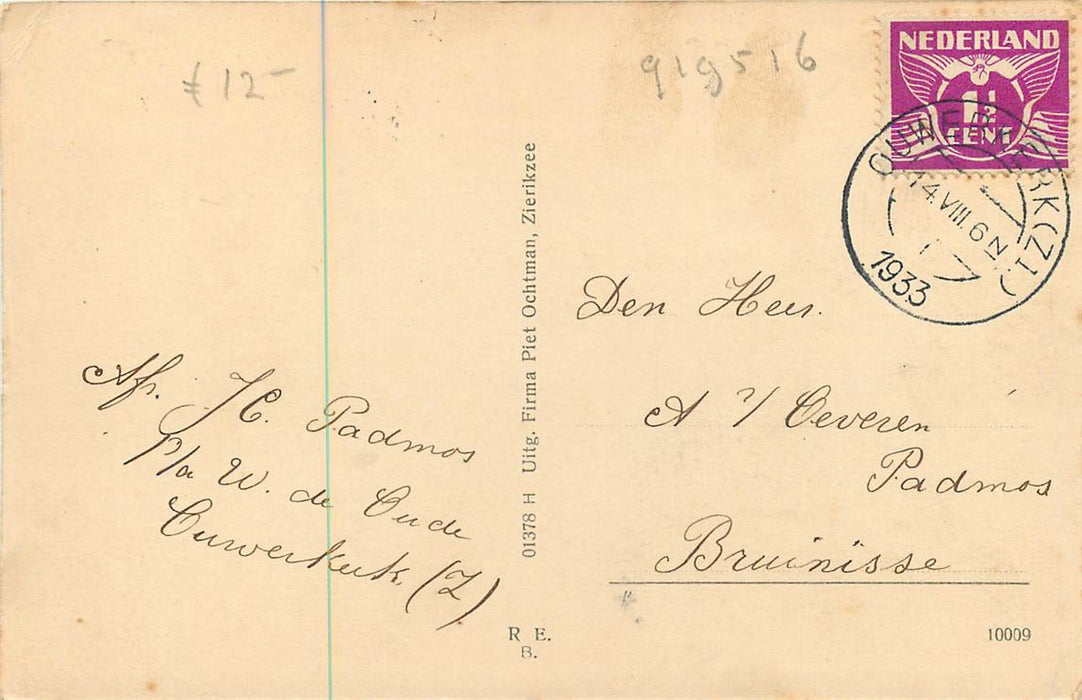 ƒ 12-
919516
NEDERLAND
1½
CENT
OUWERKERK (Z)
14.VIII.6N.
1933
Den Heer.
A v/ Oeveren
Padmos
Bruinisse
Afs. J C. Padmos
P/a W. de Oude
Ouwerkerk (Z)
01378 H Uitg. Firma Piet Ochtman, Zierikzee
R E.
B.
10009